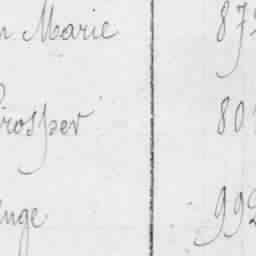 n Marie 872
Prosper 801
enge 992